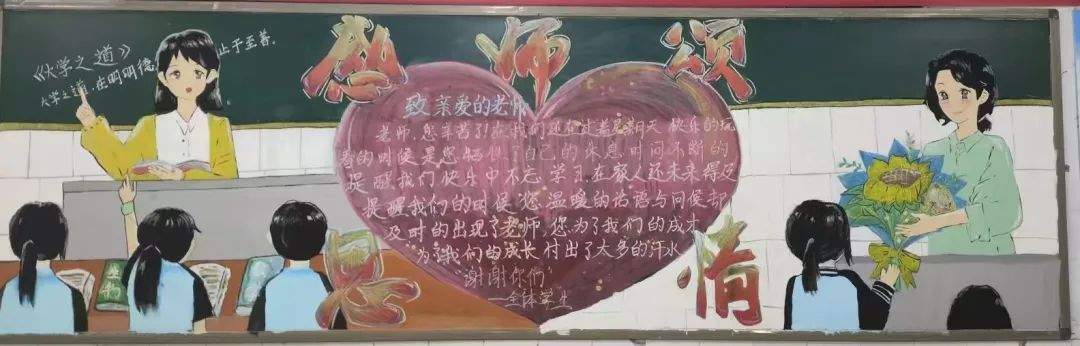 《大学之道》
大学之道，在明明德，
止于至善。
感师恩
颂
情
致亲爱的老师
老师，您辛苦了！在我们还在过着每天快乐的玩
耍的时候是您牺牲了自己的休息时间不断的
提醒我们快乐中不忘学习，在家人还未来得及
提醒我们的时候，您温暖的话语与问候却
及时的出现了老师，您为了我们的成才
为我们的成长付出了太多的汗水
“谢谢你们”
——全体学生
生物